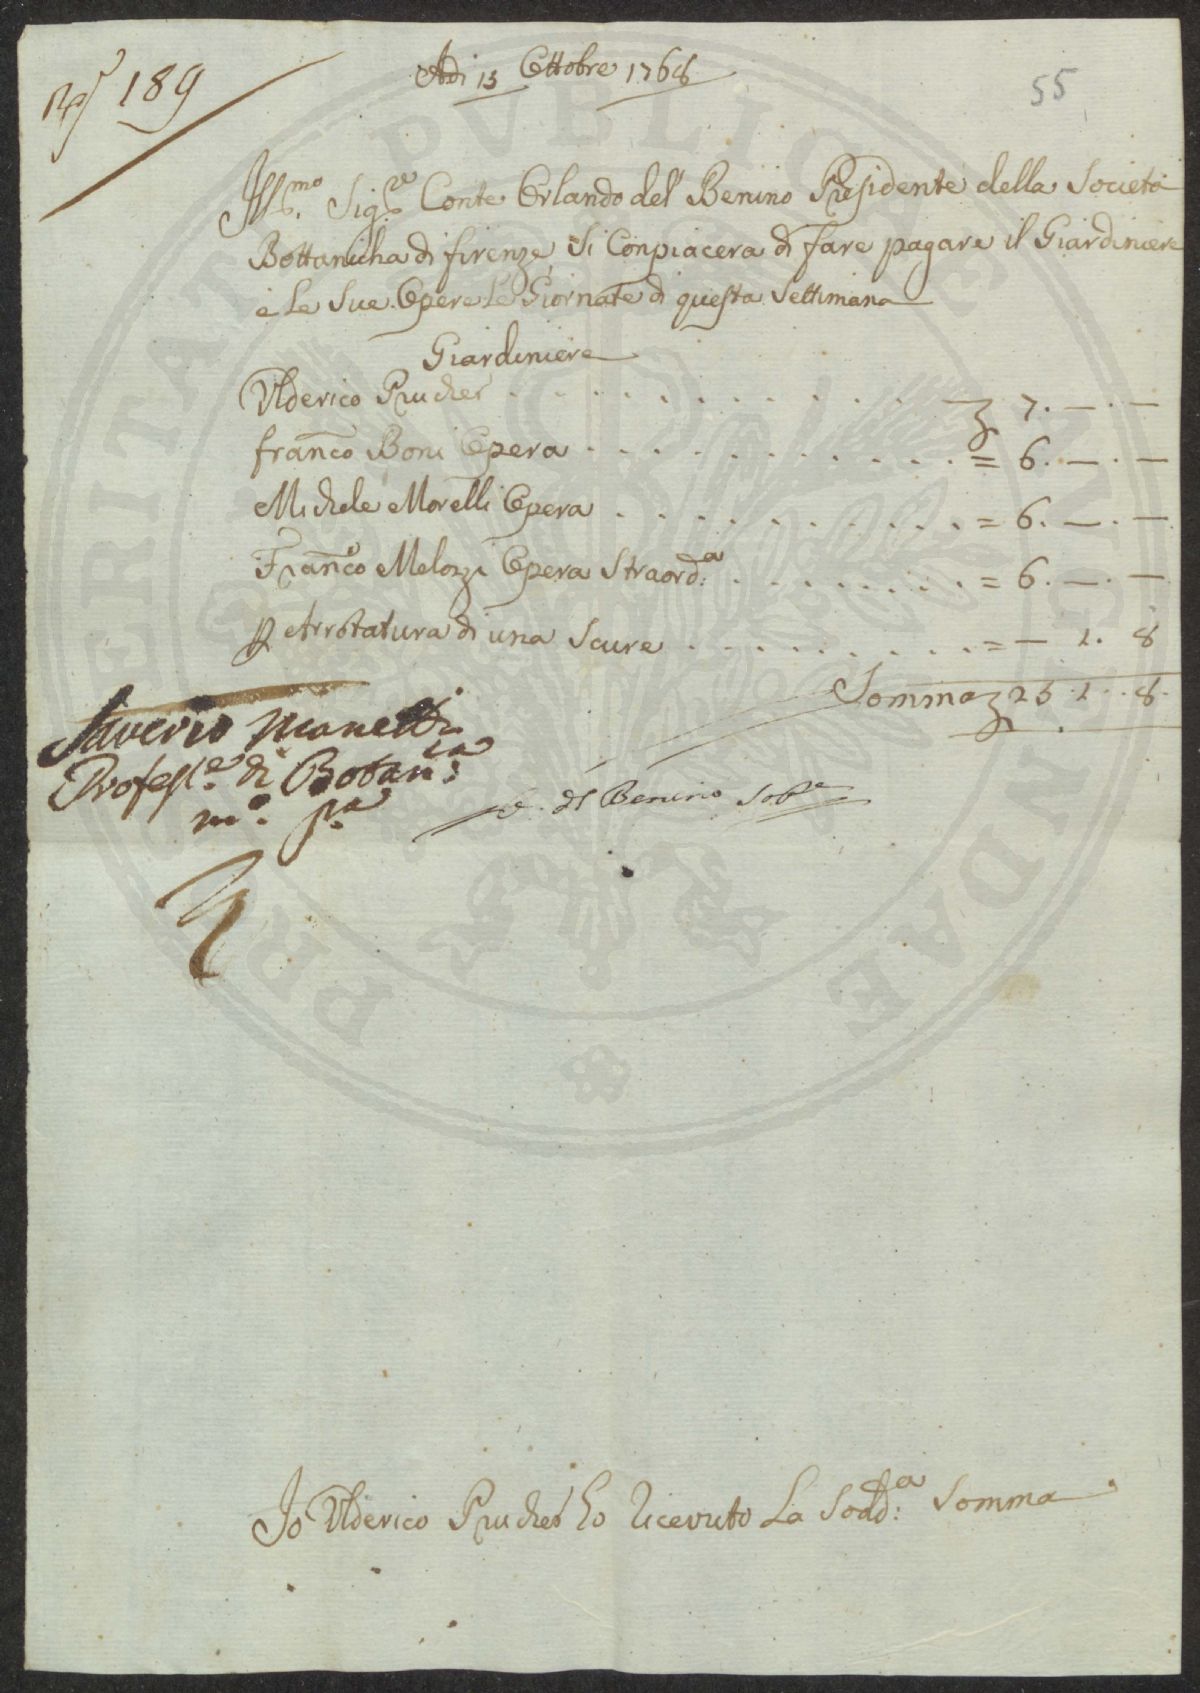 N.º 189
Adi 15 Ottobre 1768
55
Ill.mo Sig.re Conte Orlando del Benino Presidente della Società
Bottanicha di firenze, Si Conpiacera di fare pagare il Giardiniere
e le Sue Opere le Giornate di questa Settimana
Giardiniere
Ulderico Prucher . . . . . . . . . . 7. — . —
Franco Boni Opera . . . . . . . . . . = 6. — . —
Michele Morelli Opera . . . . . . . . . . = 6. — . —
Franco Melozzi Opera Straord:a . . . . . . = 6. — . —
P Arrotatura di una Scure . . . . . . . . = — 1. 8
Somma 25. 1. 8.
Saverio Manetti
Profess.e di Botan:ca
m.º p.a
O. del Benino Sop.e
PRO VERITATE PVBLICAE
Io Ulderico Prucher ho ricevuto La Sodd:a Somma